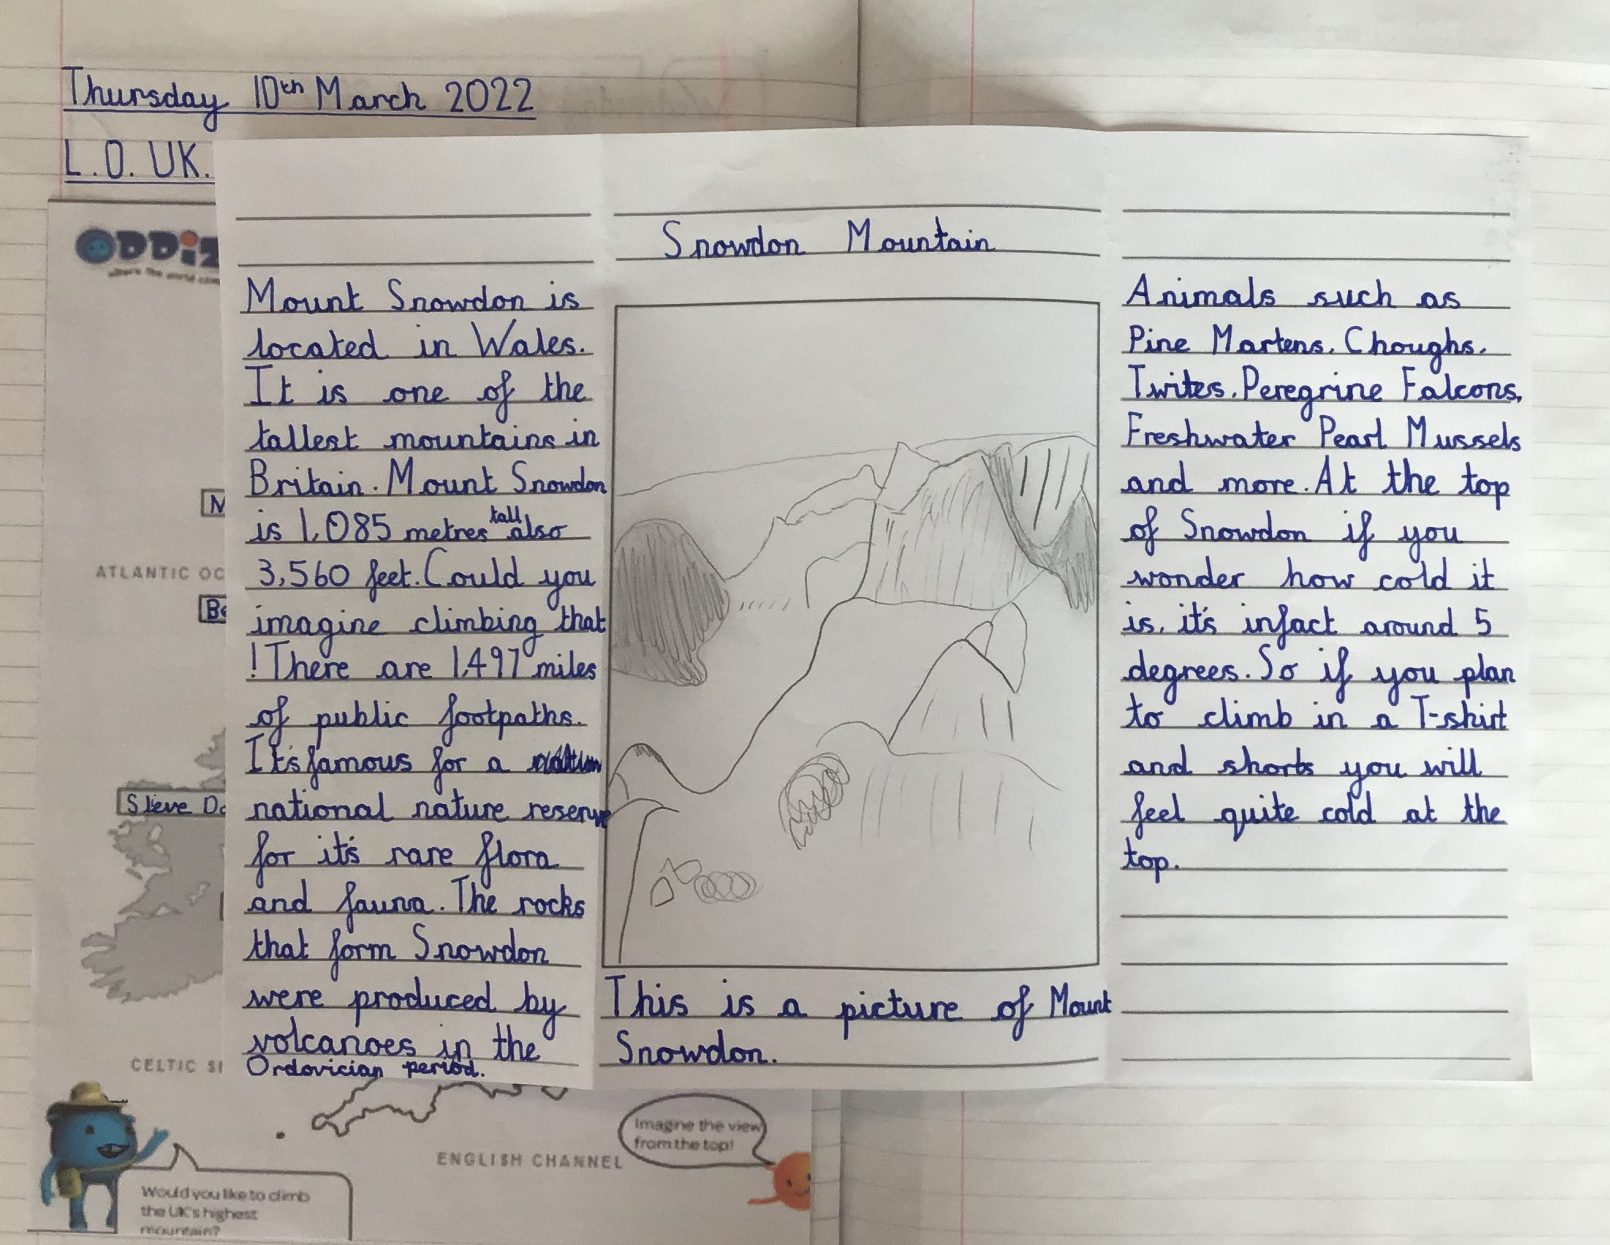 Thursday 10th March 2022
L.O. UK.
Snowdon Mountain
Mount Snowdon is
located in Wales.
It is one of the
tallest mountains in
Britain. Mount Snowdon
is 1,085 metres tall also
3,560 feet. Could you
imagine climbing that
! There are 1,497 miles
of public footpaths.
It's famous for a
national nature reserve
for it's rare flora
and fauna. The rocks
that form Snowdon
were produced by
volcanoes in the
Ordovician period.
This is a picture of Mount
Snowdon.
Animals such as
Pine Martens, Choughs,
Twites, Peregrine Falcons,
Freshwater Pearl Mussels
and more. At the top
of Snowdon if you
wonder how cold it
is, it's infact around 5
degrees. So if you plan
to climb in a T-shirt
and shorts you will
feel quite cold at the
top.
ODDiZ
ATLANTIC OC
Slieve Do
CELTIC S
ENGLISH CHANNEL
Imagine the view
from the top!
Would you like to climb
the UK's highest
mountain?